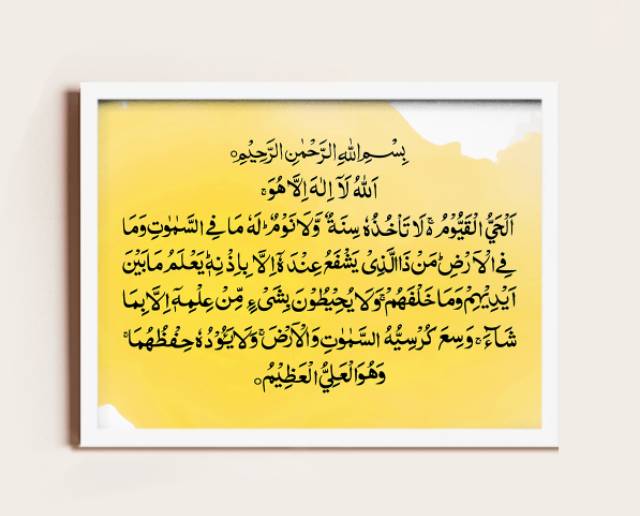 بِسْمِ اللهِ الرَّحْمٰنِ الرَّحِيْمِ○
اَللهُ لَآ اِلٰهَ اِلَّا هُوَۚ
اَلْحَيُّ الْقَيُّوْمُ ەۚ لَا تَاْخُذُهٗ سِنَةٌ وَّلَا نَوْمٌ ؕ لَهٗ مَا فِي السَّمٰوٰتِ وَمَا
فِي الْاَرْضِ ؕ مَنْ ذَا الَّذِيْ يَشْفَعُ عِنْدَهٗۤ اِلَّا بِاِذْنِهٖ ؕ يَعْلَمُ مَا بَيْنَ
اَيْدِيْهِمْ وَمَا خَلْفَهُمْ ۚ وَلَا يُحِيْطُوْنَ بِشَيْءٍ مِّنْ عِلْمِهٖۤ اِلَّا بِمَا
شَآءَ ۚ وَسِعَ كُرْسِيُّهُ السَّمٰوٰتِ وَالْاَرْضَ ۚ وَلَا يَـُٔوْدُهٗ حِفْظُهُمَا ۚ
وَهُوَ الْعَلِيُّ الْعَظِيْمُ○